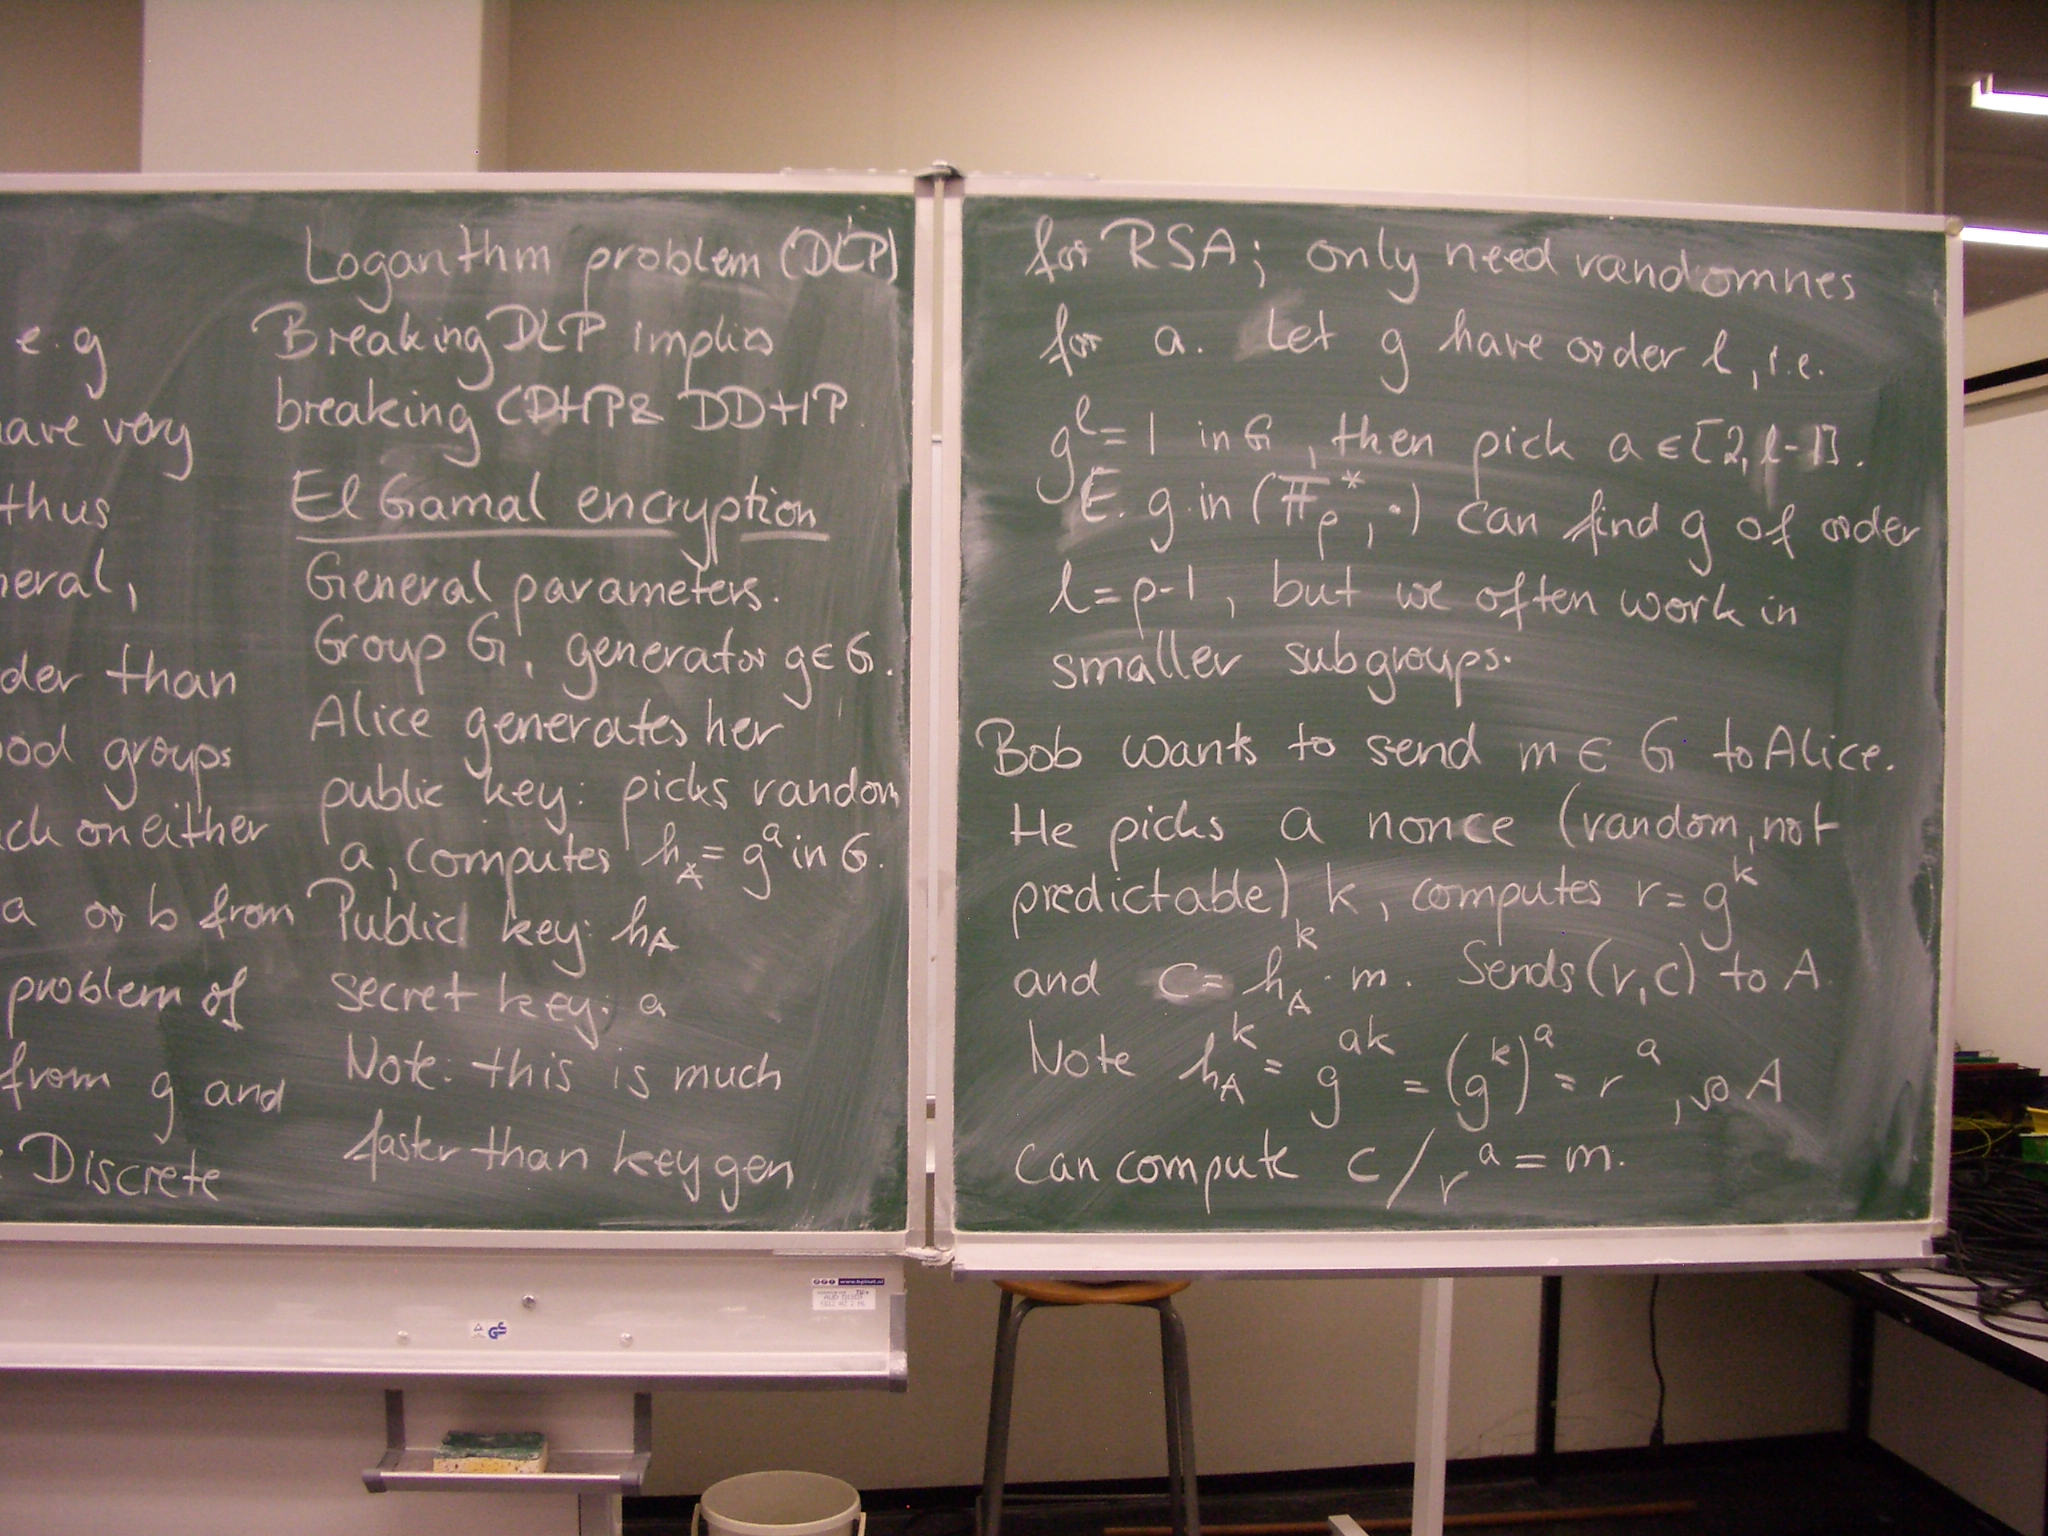 e.g
have very
thus
neral,
der than
ood groups
ck on either
a or b from
problem of
from g and
: Discrete
Logarithm problem (DLP)
Breaking DLP implies
breaking CDHP & DDHP.
El Gamal encryption
General parameters.
Group G, generator g∈G.
Alice generates her
public key: picks random
a, computes h_A = g^a in G.
Public key: h_A
secret key: a
Note: this is much
faster than key gen
for RSA; only need randomnes
for a. Let g have order l, i.e.
g^l = 1 in G, then pick a ∈ [2, l-1].
E.g. in (F_p^*, ·) can find g of order
l = p-1, but we often work in
smaller subgroups.
Bob wants to send m ∈ G to Alice.
He picks a nonce (random, not
predictable) k, computes r = g^k
and c = h_A^k · m. Sends (r,c) to A.
Note h_A^k = g^ak = (g^k)^a = r^a, so A
can compute c/r^a = m.